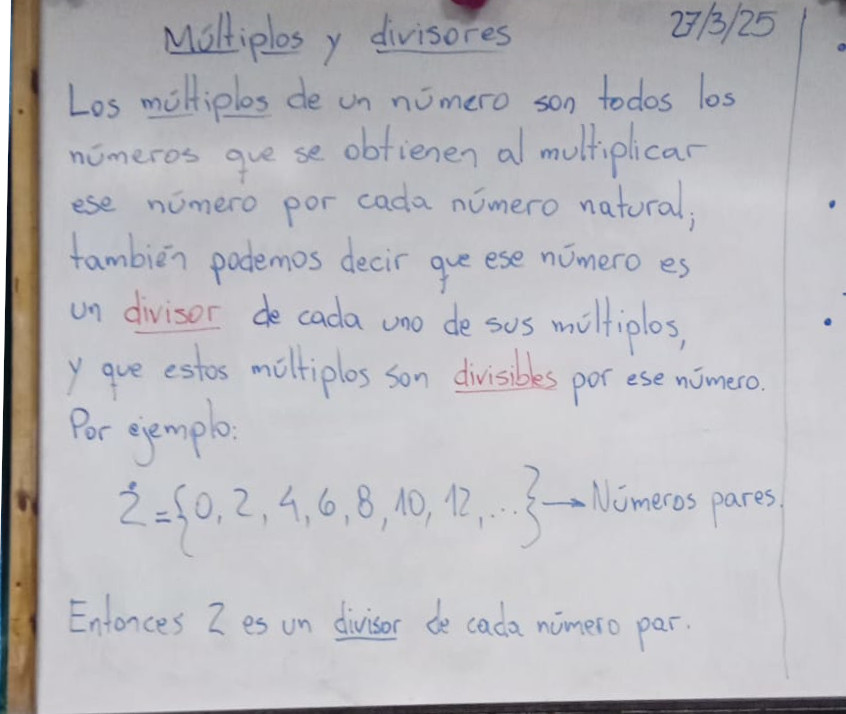 Múltiplos y divisores 27/3/25
Los múltiplos de un número son todos los
números que se obtienen al multiplicar
ese número por cada número natural;
también podemos decir que ese número es
un divisor de cada uno de sus múltiplos,
y que estos múltiplos son divisibles por ese número.
Por ejemplo:
2̇ = {0, 2, 4, 6, 8, 10, 12, ...} → Números pares.
Entonces 2 es un divisor de cada número par.